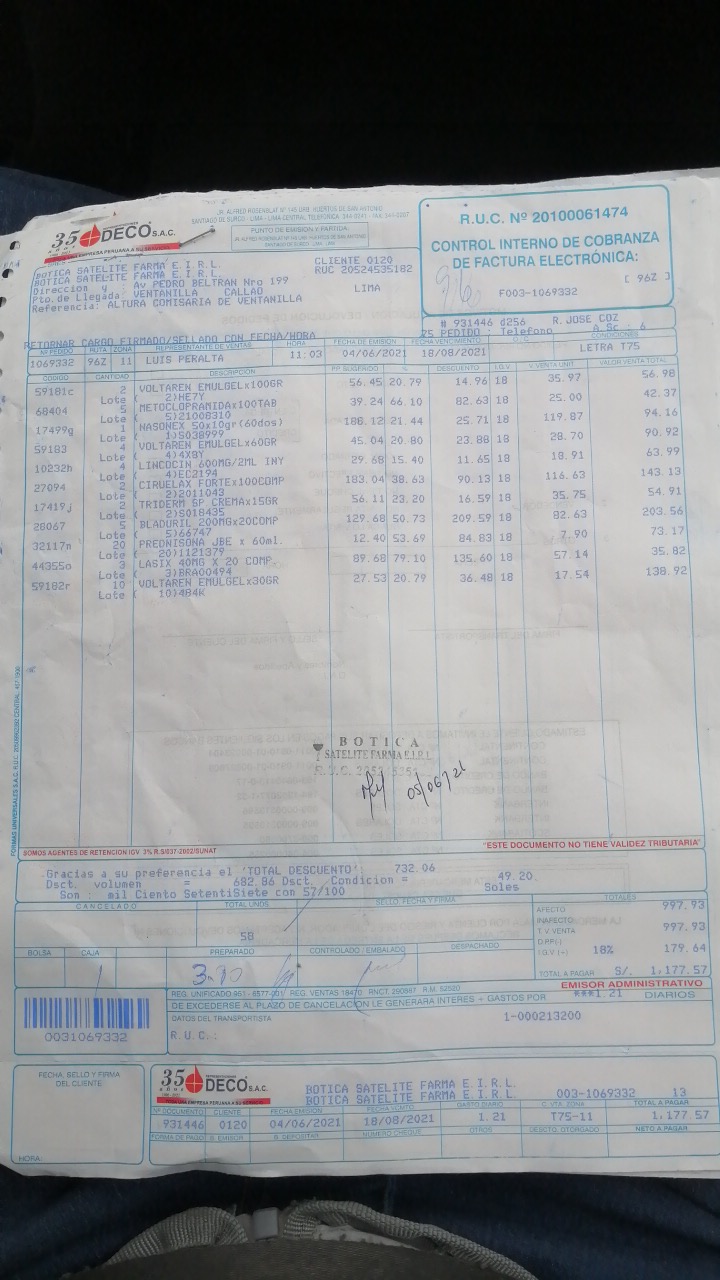 JR. ALFRED ROSENBLAT Nº 145 URB. HUERTOS DE SAN ANTONIO
SANTIAGO DE SURCO - LIMA - LIMA CENTRAL TELEFONICA
35 AÑOS DECO S.A.C.
UNA EMPRESA PERUANA A SU SERVICIO
PUNTO DE EMISIÓN Y PARTIDA
R.U.C. Nº 20100061474
CONTROL INTERNO DE COBRANZA
DE FACTURA ELECTRÓNICA:
[ 96Z ]
F003-1069332
BOTICA SATELITE FARMA E.I.R.L. CLIENTE 0120
BOTICA SATELITE FARMA E.I.R.L. RUC 20524535182
Direccion y : Av PEDRO BELTRAN Nro 199
Pto.de Llegada: VENTANILLA CALLAO LIMA
Referencia: ALTURA COMISARIA DE VENTANILLA
# 931446 d256 R.JOSE COZ
25 PEDIDO : Telefono A.Sc : 6
RETORNAR CARGO FIRMADO/SELLADO CON FECHA/HORA
Nº PEDIDO RUTA ZONA REPRESENTANTE DE VENTAS HORA FECHA DE EMISIÓN FECHA VENCIMIENTO CONDICIONES
1069332 96Z 11 LUIS PERALTA 11:03 04/06/2021 18/08/2021 LETRA T75
CODIGO CANTIDAD DESCRIPCIÓN P.P. SUGERIDO % DESCUENTO I.G.V. V.VENTA UNIT. VALOR VENTA TOTAL
59181c 2 VOLTAREN EMULGELx100GR 56.45 20.79 14.96 18 35.97 56.98
Lote ( 2)HE7Y
68404 5 METOCLOPRAMIDAx100TAB 39.24 66.10 82.63 18 25.00 42.37
Lote ( 5)21008310
17499g 1 NASONEX 50x10gr(60dos) 186.12 21.44 25.71 18 119.87 94.16
Lote ( 1)S038999
59183 4 VOLTAREN EMULGELx60GR 45.04 20.80 23.88 18 28.70 90.92
Lote ( 4)4X8Y
10232h 4 LINCOCIN 600MG/2ML INY 29.68 15.40 11.65 18 18.91 63.99
Lote ( 4)EC2194
27094 2 CIRUELAX FORTEx100COMP 183.04 38.63 90.13 18 116.63 143.13
Lote ( 2)2011043
17419j 2 TRIDERM SP CREMAx15GR 56.11 23.20 16.59 18 35.75 54.91
Lote ( 2)S018435
28067 5 BLADURIL 200MGx20COMP 129.68 50.73 209.59 18 82.63 203.56
Lote ( 5)66747
32117n 20 PREDNISONA JBE x 60ml. 12.40 53.69 84.83 18 7.90 73.17
Lote ( 20)1121379
44355o 3 LASIX 40MG X 20 COMP. 89.68 79.10 135.60 18 57.14 35.82
Lote ( 3)BRA00494
59182r 10 VOLTAREN EMULGELx30GR 27.53 20.79 36.48 18 17.54 138.92
Lote ( 10)484K
BOTICA
SATELITE FARMA E.I.R.L.
05/06/21
SOMOS AGENTES DE RETENCION IGV 3% R.S/037-2002/SUNAT
"ESTE DOCUMENTO NO TIENE VALIDEZ TRIBUTARIA"
Gracias a su preferencia el 'TOTAL DESCUENTO': 732.06
Dsct. volumen = 682.86 Dsct. Condicion = 49.20
Son : mil Ciento SetentiSiete con 57/100 Soles
CANCELADO TOTAL UNDS. SELLO, FECHA Y FIRMA TOTALES
58
AFECTO 997.93
INAFECTO
T. V. VENTA 997.93
D.P.P.(-)
I.G.V. (+) 18% 179.64
TOTAL A PAGAR S/. 1,177.57
BOLSA CAJA PREPARADO CONTROLADO / EMBALADO DESPACHADO
1
EMISOR ADMINISTRATIVO
DE EXCEDERSE AL PLAZO DE CANCELACION LE GENERARA INTERES + GASTOS POR ***1.21 DIARIOS
DATOS DEL TRANSPORTISTA 1-000213200
R.U.C.:
0031069332
FECHA, SELLO Y FIRMA
DEL CLIENTE
HORA:
35 AÑOS DECO S.A.C.
BOTICA SATELITE FARMA E.I.R.L. 003-1069332 13
BOTICA SATELITE FARMA E.I.R.L.
Nº DOCUMENTO CLIENTE FECHA EMISION FECHA VCMTO GASTO DIARIO C. VTA. ZONA TOTAL A PAGAR
931446 0120 04/06/2021 18/08/2021 1.21 T75-11 1,177.57
FORMA DE PAGO B. EMISOR B. DEPOSITAR NUMERO CHEQUE OTROS DESCTO. OTORGADO NETO A PAGAR